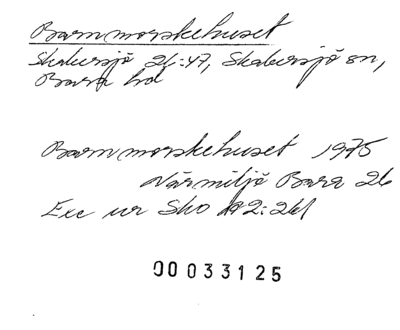 Barnmorskehuset
Skabersjö 26:47, Skabersjö sn,
Bara hd
Barnmorskehuset 1975
Närmiljö Bara 26
Exc ur Sko 2:261
00033125